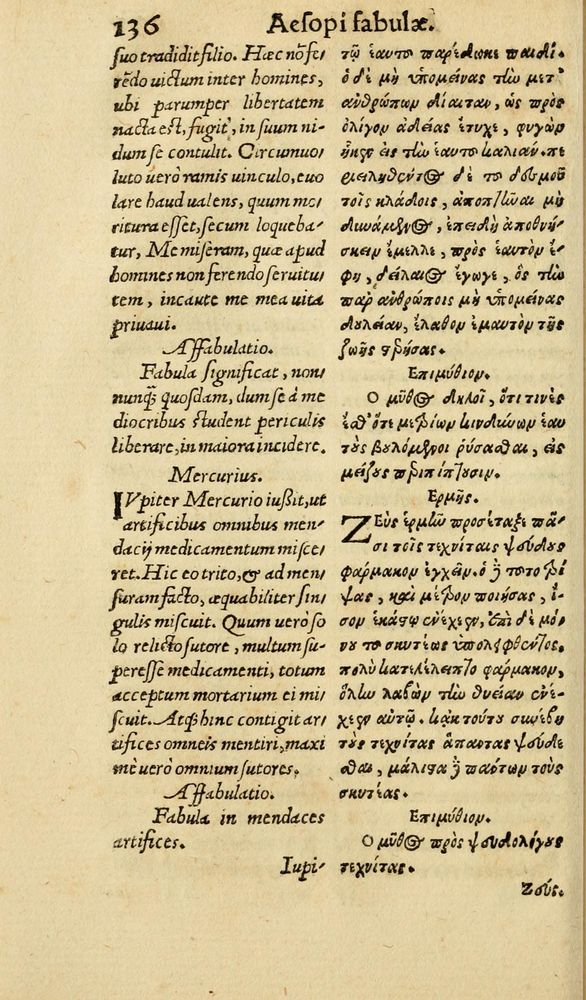 136 Aesopi fabulæ.
suo tradidit filio. Hæc nō fe/
rēdo uictum inter homines,
ubi parumper libertatem
nacta est, fugit, in suum ni/
dum se contulit. Circumuo/
luto uerò ramis uinculo, euo
lare haud ualens, quum mo/
ritura esset, secum loqueba/
tur, Me miseram, quæ apud
homines non ferendo seruitu
tem, incaute me mea uita
priuaui.
Affabulatio.
Fabula significat, non/
nunq̃ quosdam, dum se à me
diocribus student periculis
liberare, in maiora incidere.
Mercurius.
IVpiter Mercurio iussit, ut
artificibus omnibus men/
dacij medicamentum misce/
ret. Hic eo trito, & ad men/
suram facto, æquabiliter sin/
gulis miscuit. Quum uerò so
lo relicto sutore, multum su/
peresse medicamenti, totum
acceptum mortarium ei mi/
scuit. Atq̃ hinc contigit ar/
tifices omneis mentiri, maxi
mè uerò omnium sutores.
Affabulatio.
Fabula in mendaces
artifices.
Iupi/
τῷ ἑαυτοῦ παρέδωκε παιδί.
ὁ δὲ μὴ ὑπομείνας τὴν μετ'
ἀνθρώπων δίαιταν, ὡς πρὸς
ὀλίγον ἀδείας ἔτυχε, φυγὼν
ᾔηεν εἰς τὴν ἑαυτοῦ καλιάν. πε
ριειληθέντος δὲ τοῦ δεσμοῦ
τοῖς κλάδοις, ἀποπτῆναι μὴ
δυνάμενος, ἐπειδὴ ἀποθνή/
σκειν ἔμελλε, πρὸς ἑαυτὸν ἔ/
φη, δείλαιος ἔγωγε, ὃς τὴν
παρ' ἀνθρώποις μὴ ὑπομείνας
δουλείαν, ἔλαθον ἐμαυτὸν τῆς
ζωῆς στερήσας.
Ἐπιμύθιον.
Ὁ μῦθος δηλοῖ, ὅτι τινὲς
ἔσθ' ὅτε μετρίων κινδύνων ἑαυ
τοὺς βουλόμενοι ῥύσασθαι, εἰς
μείζους περιπίπτουσιν.
Ἑρμῆς.
ΖΕὺς ἑρμῇ προσέταξε πᾶ/
σι τοῖς τεχνίταις ψεύδους
φάρμακον ἐγχέαι. ὁ δὲ τοῦτο τρί
ψας, καὶ μέτρον ποιήσας, ἴ/
σον ἑκάστῳ ἐνέχεεν, ἐπεὶ δὲ μό/
νου τοῦ σκυτέως ὑπολειφθέντος,
πολὺ κατελέλειπτο φάρμακον,
ὅλην λαβὼν τὴν θυείαν ἐνέ/
χεεν αὐτῷ. κἀκ τούτου συνέβη
τοὺς τεχνίτας ἅπαντας ψεύδε
σθαι, μάλιστα δὲ πάντων τοὺς
σκυτέας.
Ἐπιμύθιον.
Ὁ μῦθος πρὸς ψευδολόγους
τεχνίτας.
Ζεύς.